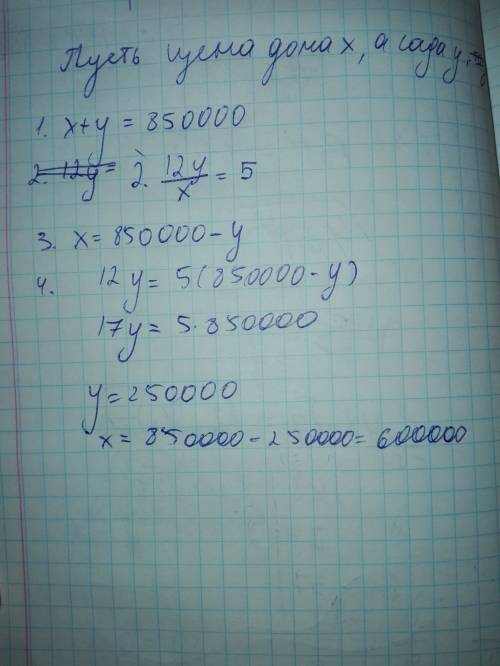 Пусть цена дома x, а сада y.
1. x+y = 850000
2. 12y= 2. 12y/x = 5
3. x= 850000-y
4. 12y= 5(850000-y)
17y= 5·850000
y=250000
x= 850000-250000= 600000